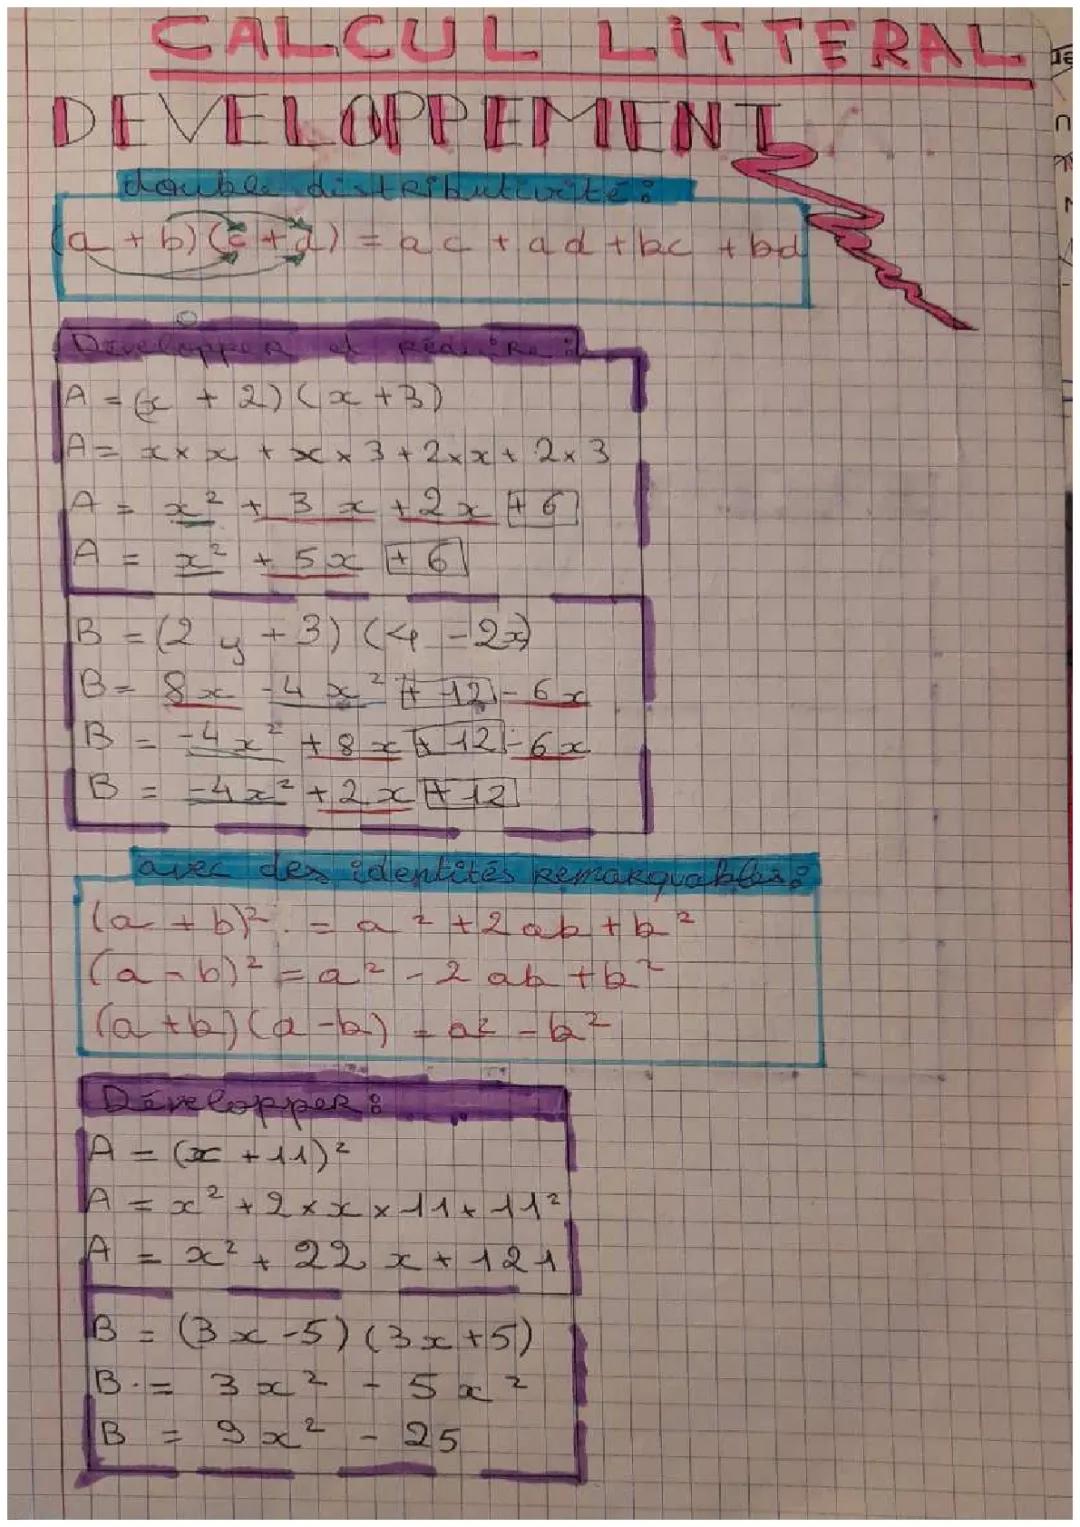 CALCUL LITTERAL
DEVELOPPEMENT
double distributivité :
(a + b)(c + d) = ac + ad + bc + bd
Développer et réduire :
A = (x + 2)(x + 3)
A = x × x + x × 3 + 2 × x + 2 × 3
A = x² + 3x + 2x + 6
A = x² + 5x + 6
B = (2y + 3)(4 - 2x)
B = 8x - 4x² + 12 - 6x
B = -4x² + 8x + 12 - 6x
B = -4x² + 2x + 12
avec des identités remarquables :
(a + b)² = a² + 2ab + b²
(a - b)² = a² - 2ab + b²
(a + b)(a - b) = a² - b²
Développer :
A = (x + 11)²
A = x² + 2 × x × 11 + 11²
A = x² + 22x + 121
B = (3x - 5)(3x + 5)
B = 3x² - 5x²
B = 9x² - 25